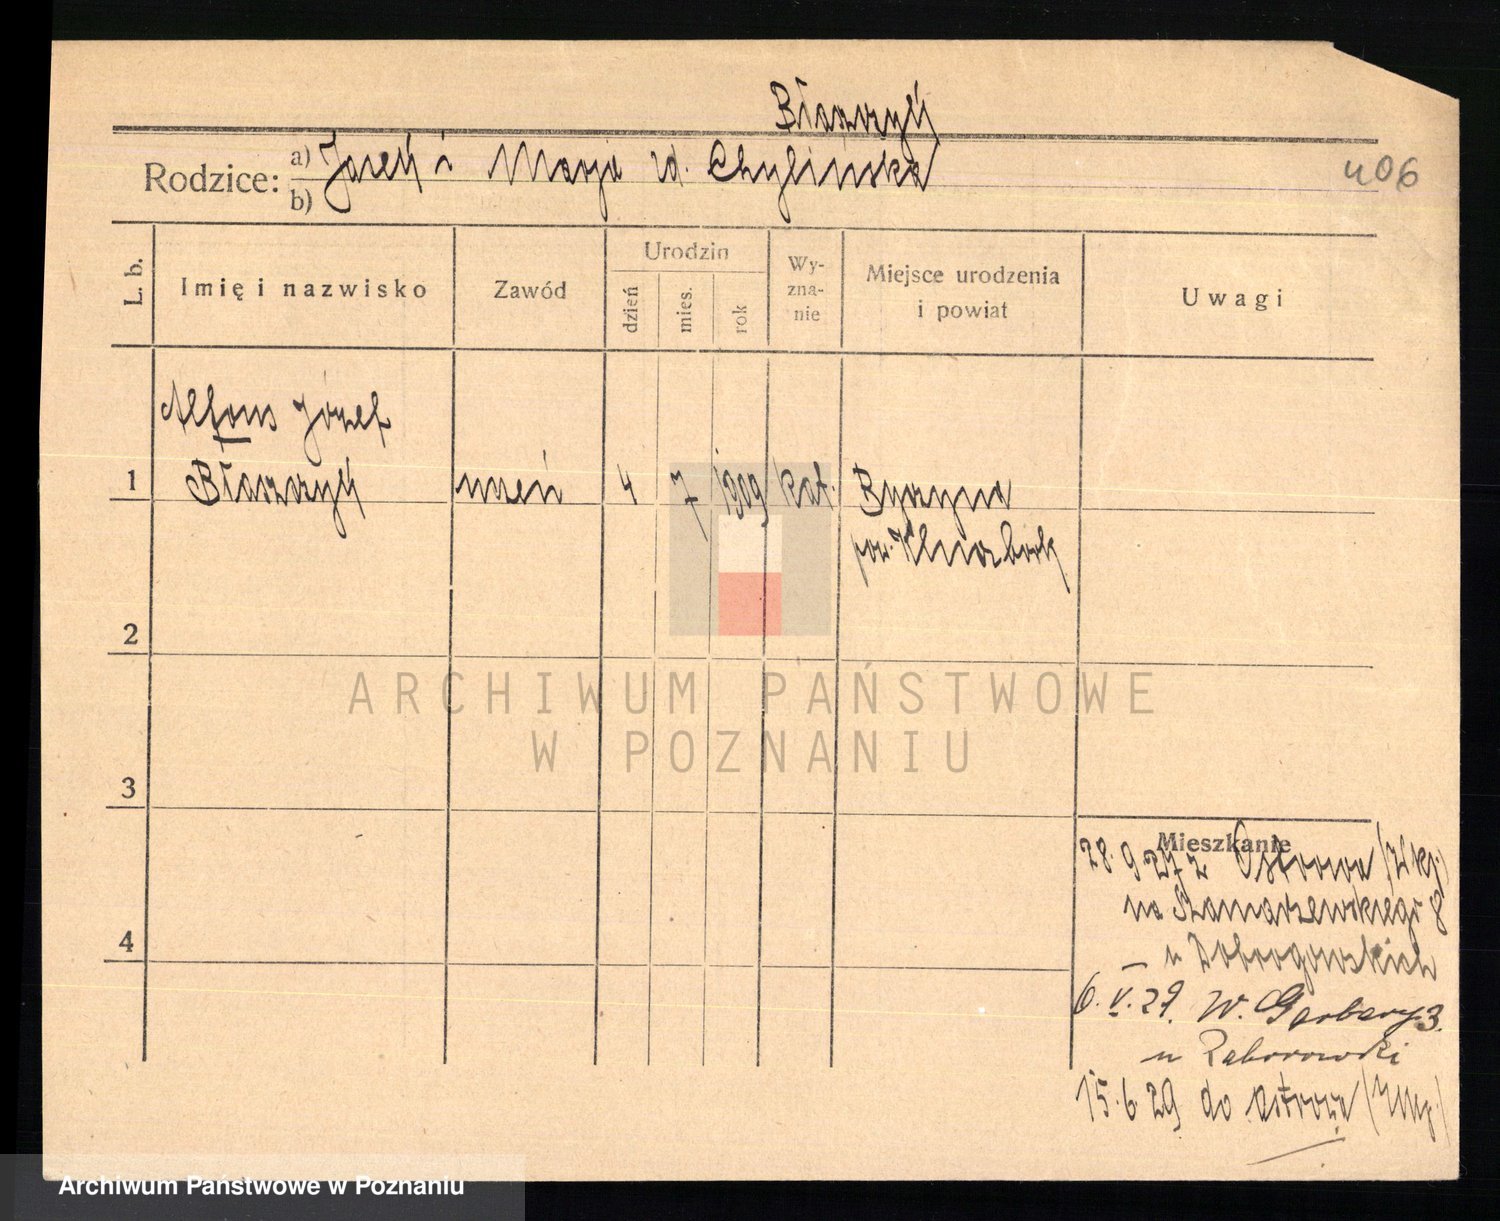 Błaszczyk
Rodzice:
a) Jacek i Marja zd. Chylińska
b)
406
L. b.
Imię i nazwisko
Zawód
Urodzin
dzień
mies.
rok
Wy-
zna-
nie
Miejsce urodzenia
i powiat
Uwagi
Alfons Józef
1 Błaszczyk uczeń 4 7 1909 kat. Byczyna
pow. Kluczbork
2
ARCHIWUM PAŃSTWOWE
W POZNANIU
3
Mieszkanie
28.9.27 z Ostrowa (Wlkp.)
na Szamarzewskiego 8
4
u Dobrogowskich
6.V.29. W. Garbary 3.
u Zaborowski
15.6.29 do Ostrowa
Archiwum Państwowe w Poznaniu